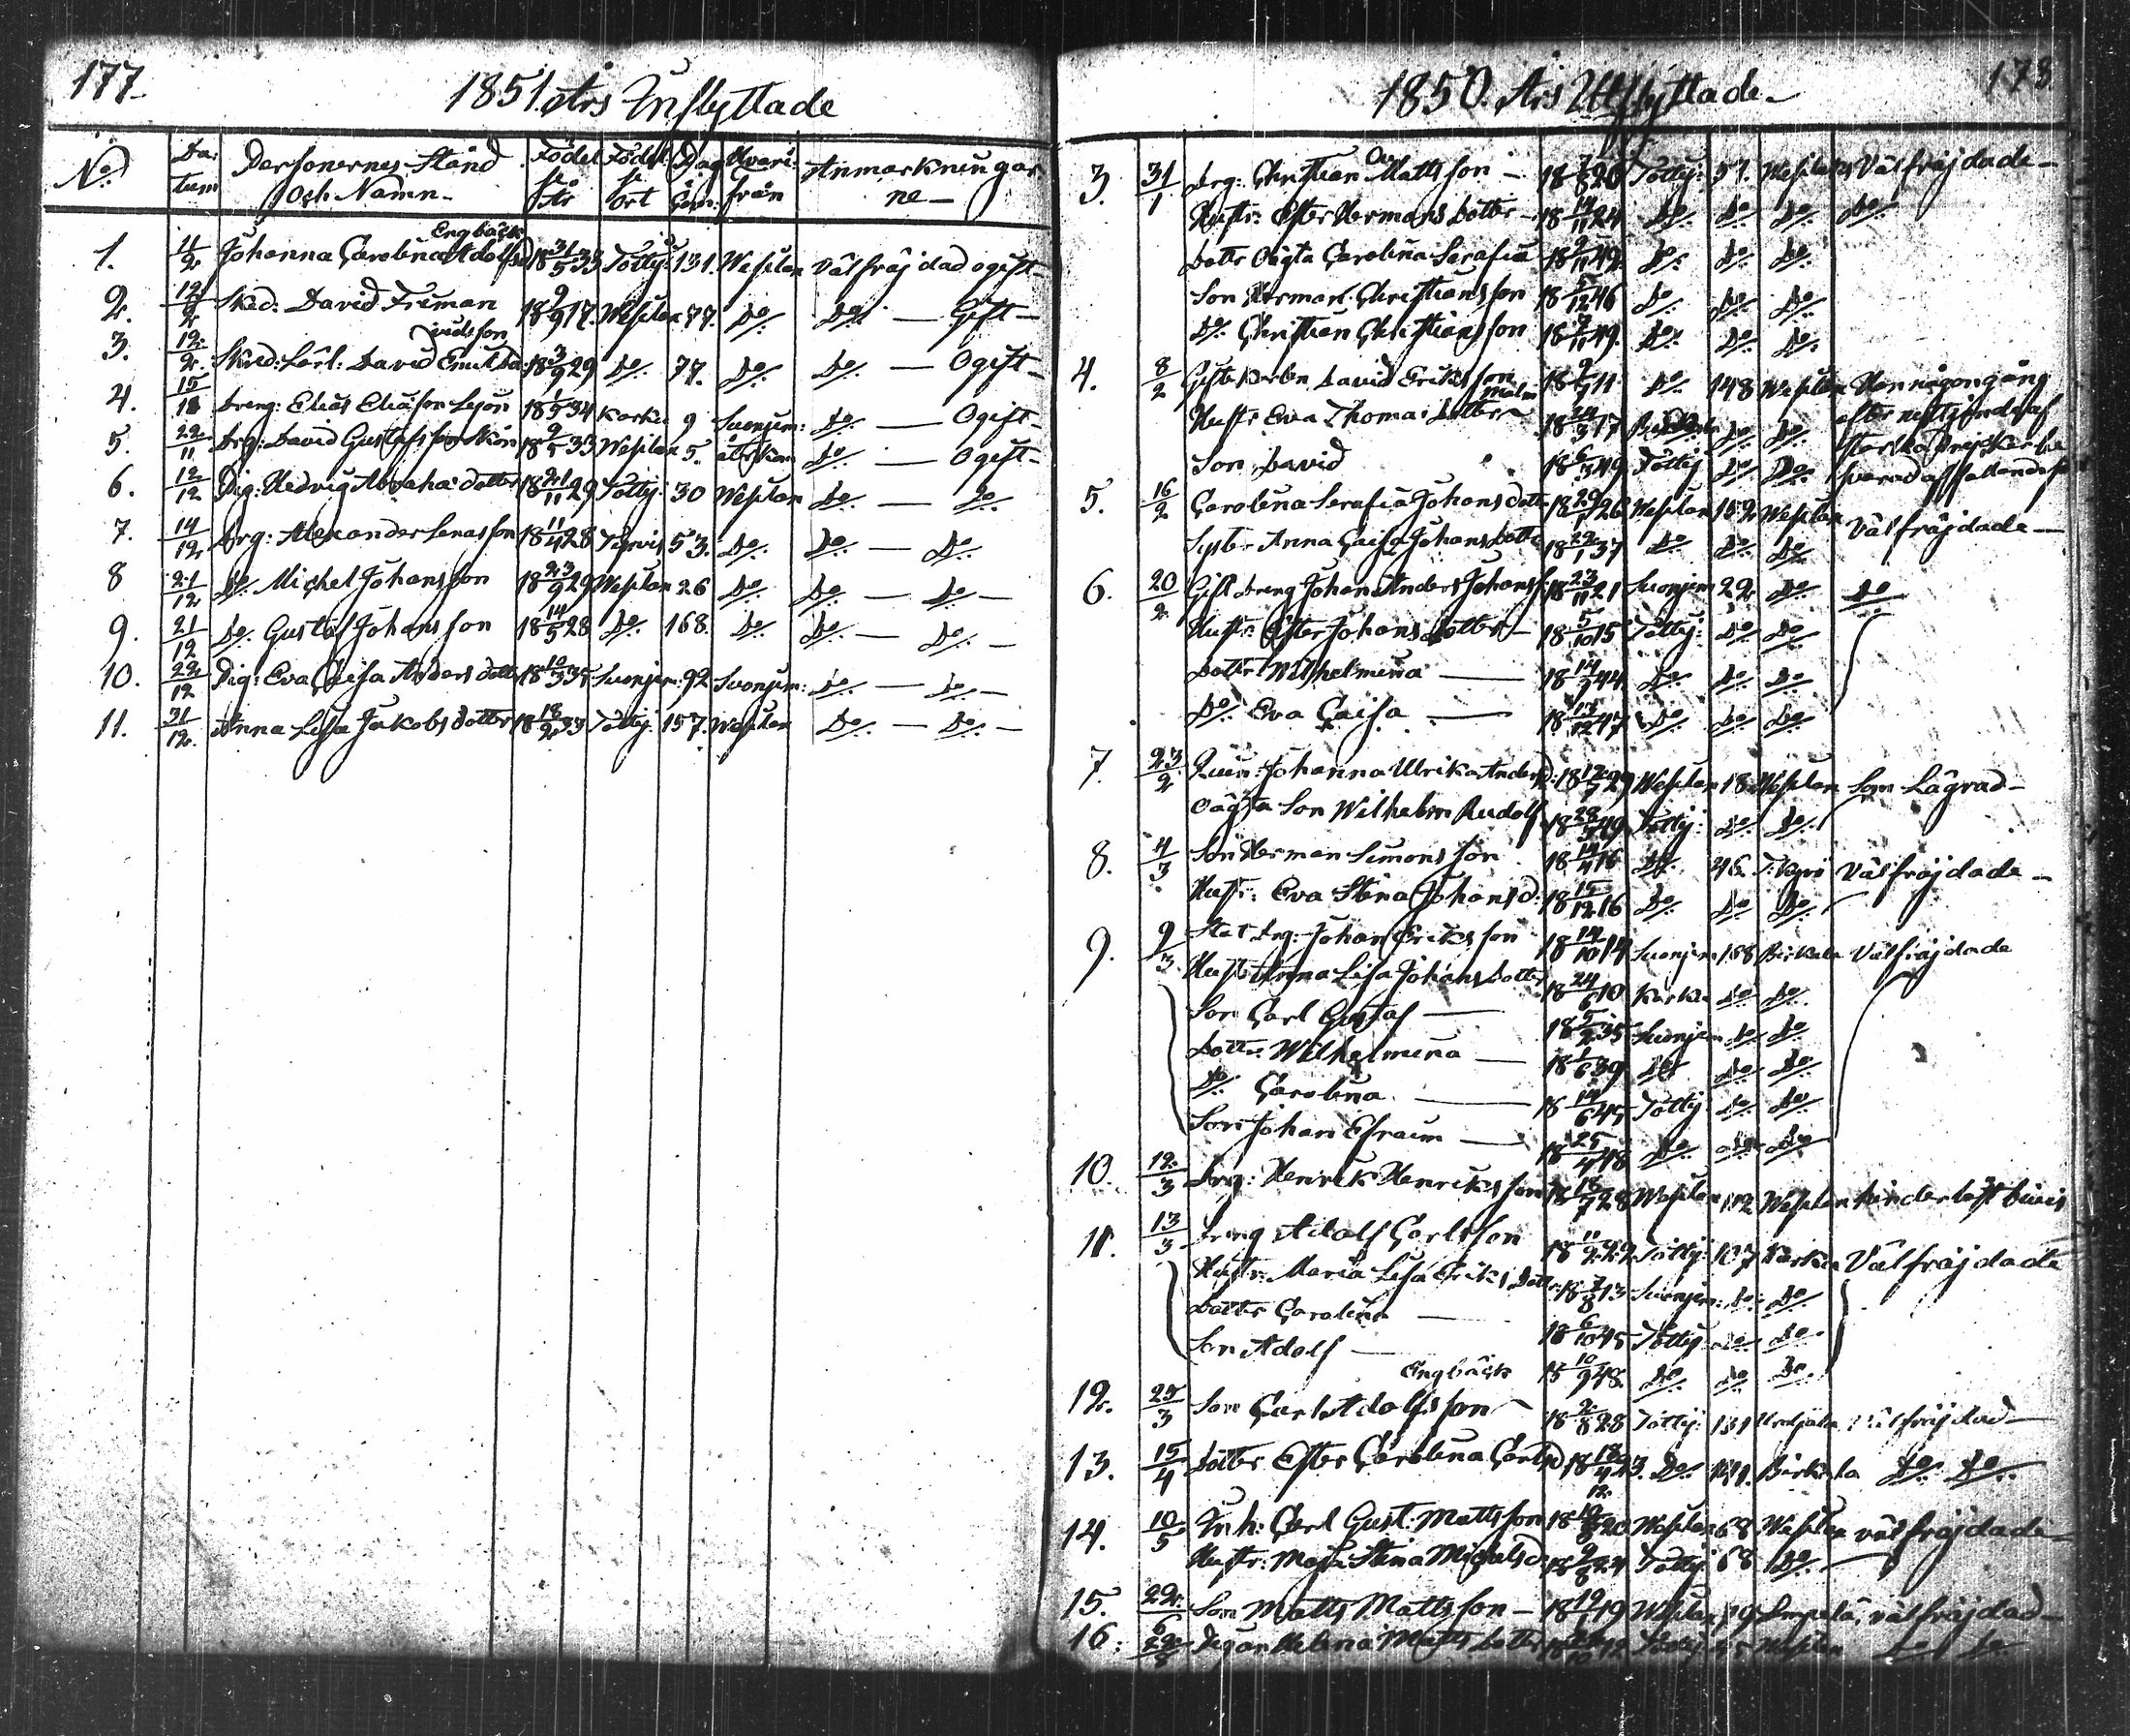 177.
1851. års Inflyttade
No Datum Personernes Stånd och Namn Född år Född ort Pag: Com: Hvarifrån Anmärkningarne
Engbäck
1. 11/2 Johanna Carolina Adolfsd 18 31/5 33 Tottij: 131. Wesilax välfräjdad ogift
2. 12/2 Sked: David Friman 18 9/9 17. Wesilax 77. Do Do — Gift
vidsson
3. 12/2 Skred: Lärl: David Emil Da: 18 3/9 29 Do 77. Do Do — Ogift
4. 15/11 dreng: Elias Eliasson Lejon 18 1/5 34 Karkù 9 Suonjem: Do — Ogift
5. 22/11 Drg: David Gustafsson 18 9/5 33 Wesilax 5. återkom Do — Ogift
6. 12/12 Pig: Hedvig Abrahas dotter 18 21/11 29 Tottij: 30 Wesilax Do — Do
7. 14/12 Drg: Alexander Jonasson 18 11/4 28 53. Do Do — Do
8 21/12 Do Michel Johansson 18 23/9 29 Wesilax 26 Do Do — Do
9. 21/12 Do Gustaf Johansson 18 14/5 28 Do 168. Do Do — Do
10. 22/12 Pig: Eva Caisa Anders dotter 18 10/3 35 Suonjem: 92 Suonjem: Do — Do
11. 31/12 Anna Lisa Jakobs dotter 18 18/2 33 Tottij: 157. Wesilax Do — Do
178.
1850. Års Utflyttade
3. 31/1 Drg: Christian Mattsson 18 7/8 20 Tottij: 57. Wesilax Välfräjdade
Hustr: Ester Hermans dotter 18 14/11 24 Do Do Do Do
Dottr Oägta Carolina Serafia 18 9/11 42 Do Do Do
Son Herman Christiansson 18 5/12 46 Do Do Do
Do Christian Christiansson 18 9/11 49. Do Do Do
4. 8/2 Gifte Karlen David Eriksson 18 9/9 11 Do 148 Wesilax Han någon gång
Malm
Hustr Eva Thomas dotter 18 24/3 17 Do Do efter nyttjande af
Son David 18 6/3 49 Tottij Do Do starka drycker be
5. 16/2 Carolina Serafia Johans dottr 18 29/1 26 Wesilax 152 Wesilax Välfräjdade
Syster Anna Caisa Johans dottr 18 22/1 37 Do Do Do
6. 20/2 Gift dreng Johan Anders Johanss. 18 23/11 21 Suonjem 22 Do Do
Hustr: Ester Johans dotter 18 5/10 15 Tottij: Do Do
Dottr Wilhelmina — 18 14/9 44 Do Do Do
Do Eva Caisa — 18 13/12 47 Do Do Do
7. 23/2 Qvin: Johanna Ulrika Andersd: 18 12/7 29 Wesilax 18. Wesilax Som Lägrad
oägta Son Wilhelm Rudolf 18 28/7 49 Tottij: Do Do
8. 4/3 Son Herman Simonsson 18 14/4 16 Do 46. T:Kyrö Välfräjdade
Hustr: Eva Stina Johansd: 18 15/12 16 Do Do Do
9. 9/3 Stat drg: Johan Eriksson 18 14/10 14 Suonjem 158 Birkala Välfräjdade
Hustr Anna Lisa Johans dotter 18 24/6 10 Karku Do Do
Son Carl Gustaf — 18 5/2 35 Suonjem Do Do
Dottr: Wilhelmina — 18 1/6 39 Do Do Do
Do Carolina — 18 14/6 45 Tottij: Do Do
Son Johan Efraim — 18 25/4 48 Do Do Do
10. 12/3 Drg: Henrik Henriksson 18 18/7 28 Wesilax 112 Wesilax hinderlöst bevis
11. 13/3 Dreng Adolf Carlsson 18 11/2 22 Tottij: 107 Karku Välfräjdade
Hustr: Maria Lisa Eriks dottr: 18 7/8 13 Suonjem: Do Do
Dotter Carolina — 18 6/10 45 Tottij: Do Do
Son Adolf — 18 10/9 48. Do Do Do
Engbäck
12. 25/3 Son Carl Adolfsson 18 2/8 28 Tottij: 131 Urdjala Välfräjdad
13. 15/4 Dotter Ester Carolina Carlsd 18 18/4 23. Do 141. Birkala Do Do
14. 10/5 Inh: Carl Gust: Mattsson 18 20 Wesilax 68 Wesilax välfräjdade
Hustr: Maja Stina Michelsd. 18 9/8 24 Tottij 68 Do
15. 22/6 Son Matts Mattsson 18 19 Wesilax välfräjdad
16. 22/8 Pigan Helena Matts dotter 18 Tottij Wesilax Do Do